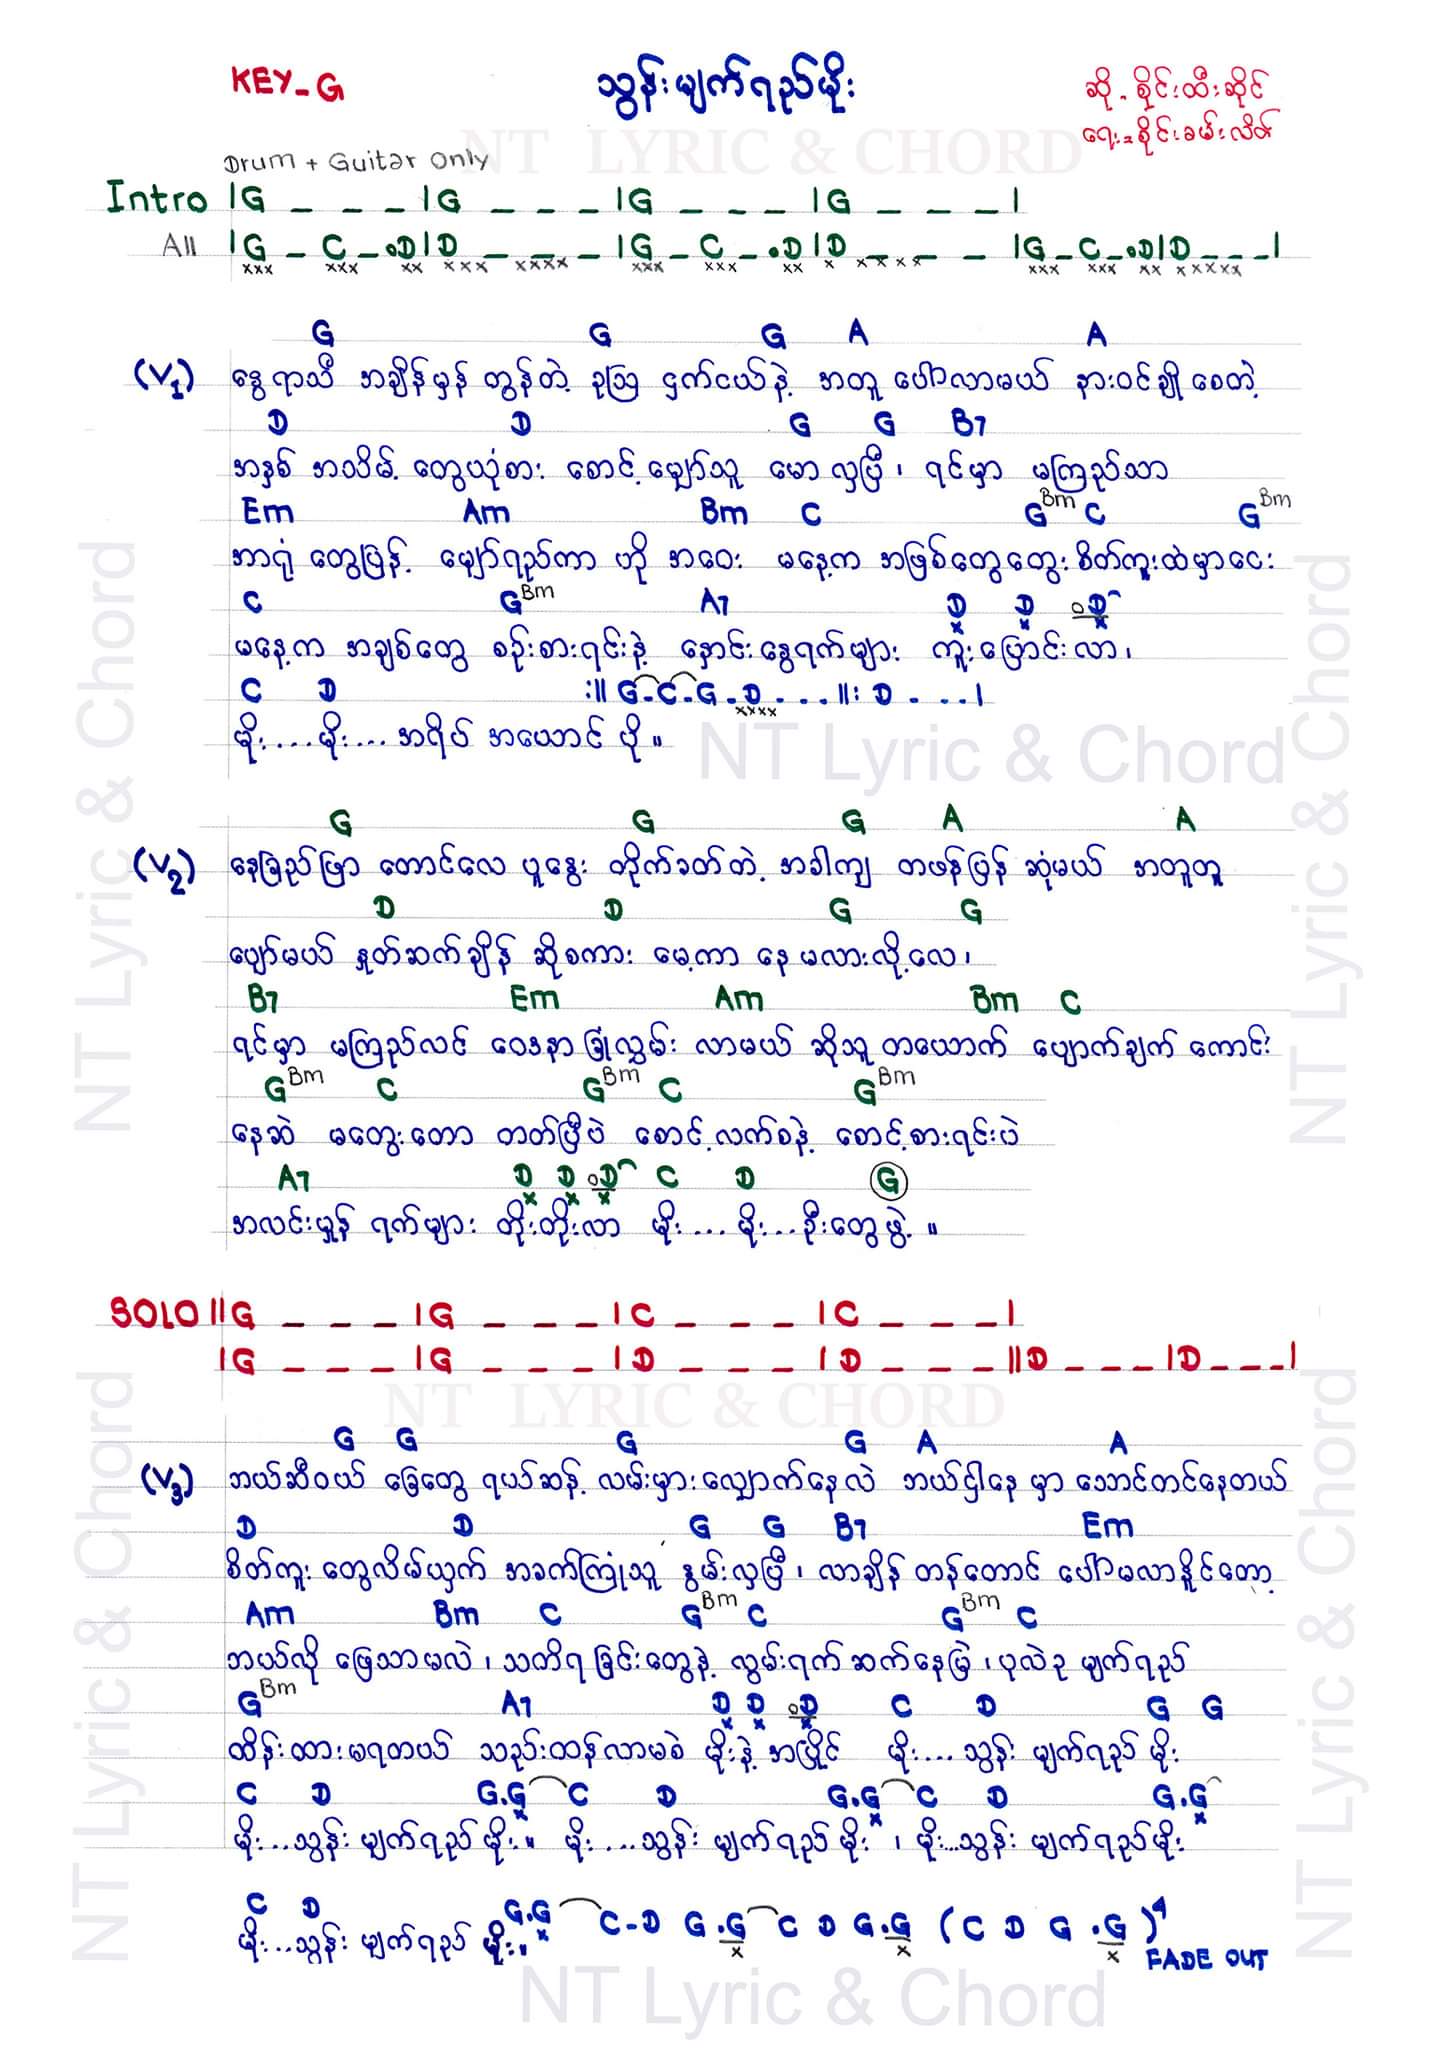 KEY-G
သွန်းမျက်ရည်မိုး
ဆို - စိုင်းထီးဆိုင်
ရေး = စိုင်းခမ်းလိတ်
NT LYRIC & CHORD
Drum + Guitar Only
Intro |G _ _ _ |G _ _ _ |G _ _ _ |G _ _ _ |
All |G _ C _ .D|D _ _ _ |G _ C _ .D|D _ _ _ |G _ C _ .D|D _ _ _ |
xxx xxx xx xxx xxxx xxx xxx xx x xxxx xxx xxx xx xxxxx
G G G A A
(V1) နွေရာသီ အချိန်မှန် တွန်တဲ့ ဥဩ ငှက်ငယ်နဲ့ အတူ ပေါ်လာမယ် နားဝင်ချို စေတဲ့
D D G G B7
အနှစ် အသိမ့် တွေယုံစား စောင့်မျှော်သူ မောလှပြီ၊ ရင်မှာ မကြည်သာ
Em Am Bm C G Bm C G Bm
အာရုံ တွေပြန့် မျှော်ရည်ကာ ဟို အဝေး မနေ့က အဖြစ်တွေတွေး စိတ်ကူးထဲမှာငေး
C G Bm A7 D D D
မနေ့က အချစ်တွေ စဉ်းစားရင်းနဲ့ နှောင်းနွေရက်များ ကူးပြောင်းလာ၊
C D :|| G-C-G-D---||: D----|
xxxx
မိုး....မိုး.... အရိပ် အယောင် ပို ။
NT Lyric & Chord
G G G A A
(V2) နေခြည်ဖြာ တောင်လေ ပူနွေး တိုက်ခတ်တဲ့ အခါကျ တဖန်ပြန် ဆုံမယ် အတူတူ
D D G G
ပျော်မယ် နှုတ်ဆက်ချိန် ဆိုစကား မေ့ကာ နေမလားလို့လေ၊
B7 Em Am Bm C
ရင်မှာ မကြည်လင် ဝေဒနာခြုံလွှမ်း လာမယ် ဆိုသူ တယောက် ပျောက်ချက် ကောင်း
G Bm C G Bm C G Bm
နေဆဲ မတွေးတော တတ်ပြီပဲ စောင့်လက်စနဲ့ စောင့်စားရင်းပဲ
A7 D D D C D G
အလင်းမှုန် ရက်များ တိုးတိုးလာ မိုး....မိုး...ဦးတွေဖွဲ့ ။
SOLO ||G _ _ _ |G _ _ _ |C _ _ _ |C _ _ _ |
|G _ _ _ |G _ _ _ |D _ _ _ |D _ _ _ ||D _ _ _ |D _ _ _ |
NT LYRIC & CHORD
G G G G A A
(V3) ဘယ်ဆီဝယ် ခြေတွေ ရယ်ဆန့် လမ်းမှားလျှောက်နေလဲ ဘယ်ဌါနေ မှာ သောင်တင်နေတယ်
D D G G B7 Em
စိတ်ကူး တွေလိမ်ယှက် အခက်ကြုံသူ နွမ်းလှပြီ၊ လာချိန် တန်တောင် ပေါ်မလာနိုင်တော့
Am Bm C G Bm C G Bm C
ဘယ်လို ဖြေသာမလဲ၊ သတိရ ခြင်းတွေနဲ့ လွမ်းရက် ဆက်နေမြဲ၊ ပုလဲဥ မျက်ရည်
G Bm A7 D D D C D G G
ထိန်းထားမရတယ် သည်းထန်လာမစဲ မိုးနဲ့ အပြိုင် မိုး....သွန်း မျက်ရည် မိုး
C D G.G C D G.G C D G.G
မိုး...သွန်း မျက်ရည် မိုး။ မိုး....သွန်း မျက်ရည် မိုး ၊ မိုး...သွန်း မျက်ရည်မိုး
C D G.G C-D G .G C D G .G (C D G .G)4
မိုး...သွန်း မျက်ရည် မိုး။ FADE OUT
NT Lyric & Chord
NT Lyric & Chord
NT Lyric & Chord
NT Lyric & Chord
NT Lyric & Chord